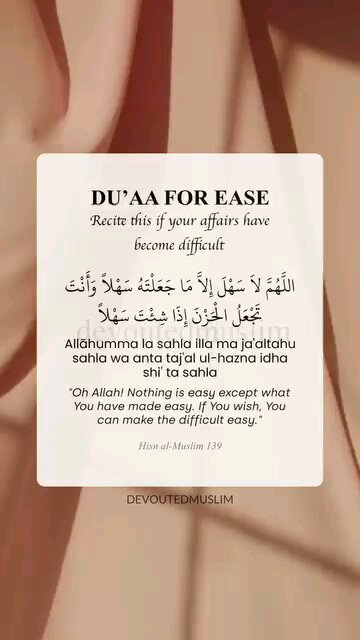 DU'AA FOR EASE
Recite this if your affairs have
become difficult
اللَّهُمَّ لاَ سَهْلَ إِلاَّ مَا جَعَلْتَهُ سَهْلاً وَأَنْتَ
تَجْعَلُ الْحَزْنَ إِذَا شِئْتَ سَهْلاً
devoutedmuslim
Allāhumma la sahla illa ma ja'altahu
sahla wa anta taj'al ul-hazna idha
shi' ta sahla
"Oh Allah! Nothing is easy except what
You have made easy. If You wish, You
can make the difficult easy."
Hisn al-Muslim 139
DEVOUTEDMUSLIM